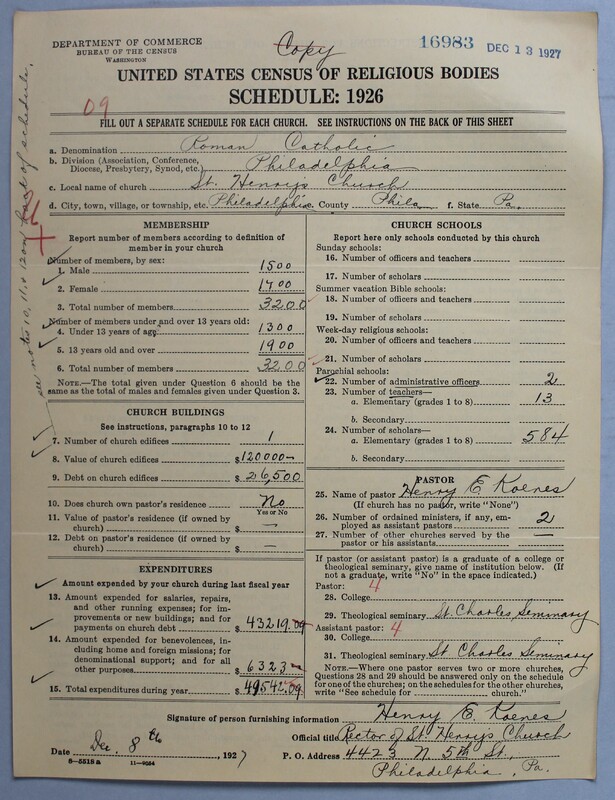 DEPARTMENT OF COMMERCE
BUREAU OF THE CENSUS
WASHINGTON
Copy
16983 DEC 13 1927
UNITED STATES CENSUS OF RELIGIOUS BODIES
SCHEDULE: 1926
09
FILL OUT A SEPARATE SCHEDULE FOR EACH CHURCH. SEE INSTRUCTIONS ON THE BACK OF THIS SHEET
a. Denomination Roman Catholic
b. Division (Association, Conference, Diocese, Presbytery, Synod, etc.) Philadelphia
c. Local name of church St. Henrys Church
d. City, town, village, or township, etc. Philadelphia e. County Phila f. State Pa.
see notes 10, 11 & 12 on back of schedule.
MEMBERSHIP
Report number of members according to definition of
member in your church
Number of members, by sex:
1. Male 1500
2. Female 1700
3. Total number of members 3200
Number of members under and over 13 years old:
4. Under 13 years of age 1300
5. 13 years old and over 1900
6. Total number of members 3200
NOTE.—The total given under Question 6 should be the
same as the total of males and females given under Question 3.
CHURCH BUILDINGS
See instructions, paragraphs 10 to 12
7. Number of church edifices 1
8. Value of church edifices $120000-
9. Debt on church edifices $26,500
10. Does church own pastor's residence No
Yes or No
11. Value of pastor's residence (if owned by
church) $ —
12. Debt on pastor's residence (if owned by
church) $ —
EXPENDITURES
Amount expended by your church during last fiscal year
13. Amount expended for salaries, repairs,
and other running expenses; for im-
provements or new buildings; and for
payments on church debt $43219.09
14. Amount expended for benevolences,
including home and foreign missions; for
denominational support; and for all
other purposes $6323
15. Total expenditures during year $49542.09
CHURCH SCHOOLS
Report here only schools conducted by this church
Sunday schools:
16. Number of officers and teachers
17. Number of scholars
Summer vacation Bible schools:
18. Number of officers and teachers
19. Number of scholars
Week-day religious schools:
20. Number of officers and teachers
21. Number of scholars
Parochial schools:
22. Number of administrative officers 2
23. Number of teachers—
a. Elementary (grades 1 to 8) 13
b. Secondary
24. Number of scholars—
a. Elementary (grades 1 to 8) 584
b. Secondary
PASTOR
25. Name of pastor Henry E Koenes
(If church has no pastor, write "None")
26. Number of ordained ministers, if any, em-
ployed as assistant pastors 2
27. Number of other churches served by the
pastor or his assistants —
If pastor (or assistant pastor) is a graduate of a college or
theological seminary, give name of institution below. (If
not a graduate, write "No" in the space indicated.)
Pastor: 4
28. College
29. Theological seminary St. Charles Seminary
Assistant pastor: 4
30. College
31. Theological seminary St Charles Seminary
NOTE.—Where one pastor serves two or more churches,
Questions 28 and 29 should be answered only on the schedule
for one of the churches; on the schedules for the other churches,
write "See schedule for ........ church."
Signature of person furnishing information Henry E. Koenes
Official title Rector of St Henrys Church
Date Dec. 8th, 1927
P. O. Address 4423 N. 5th St.,
8—5518a 11—9064
Philadelphia, Pa.